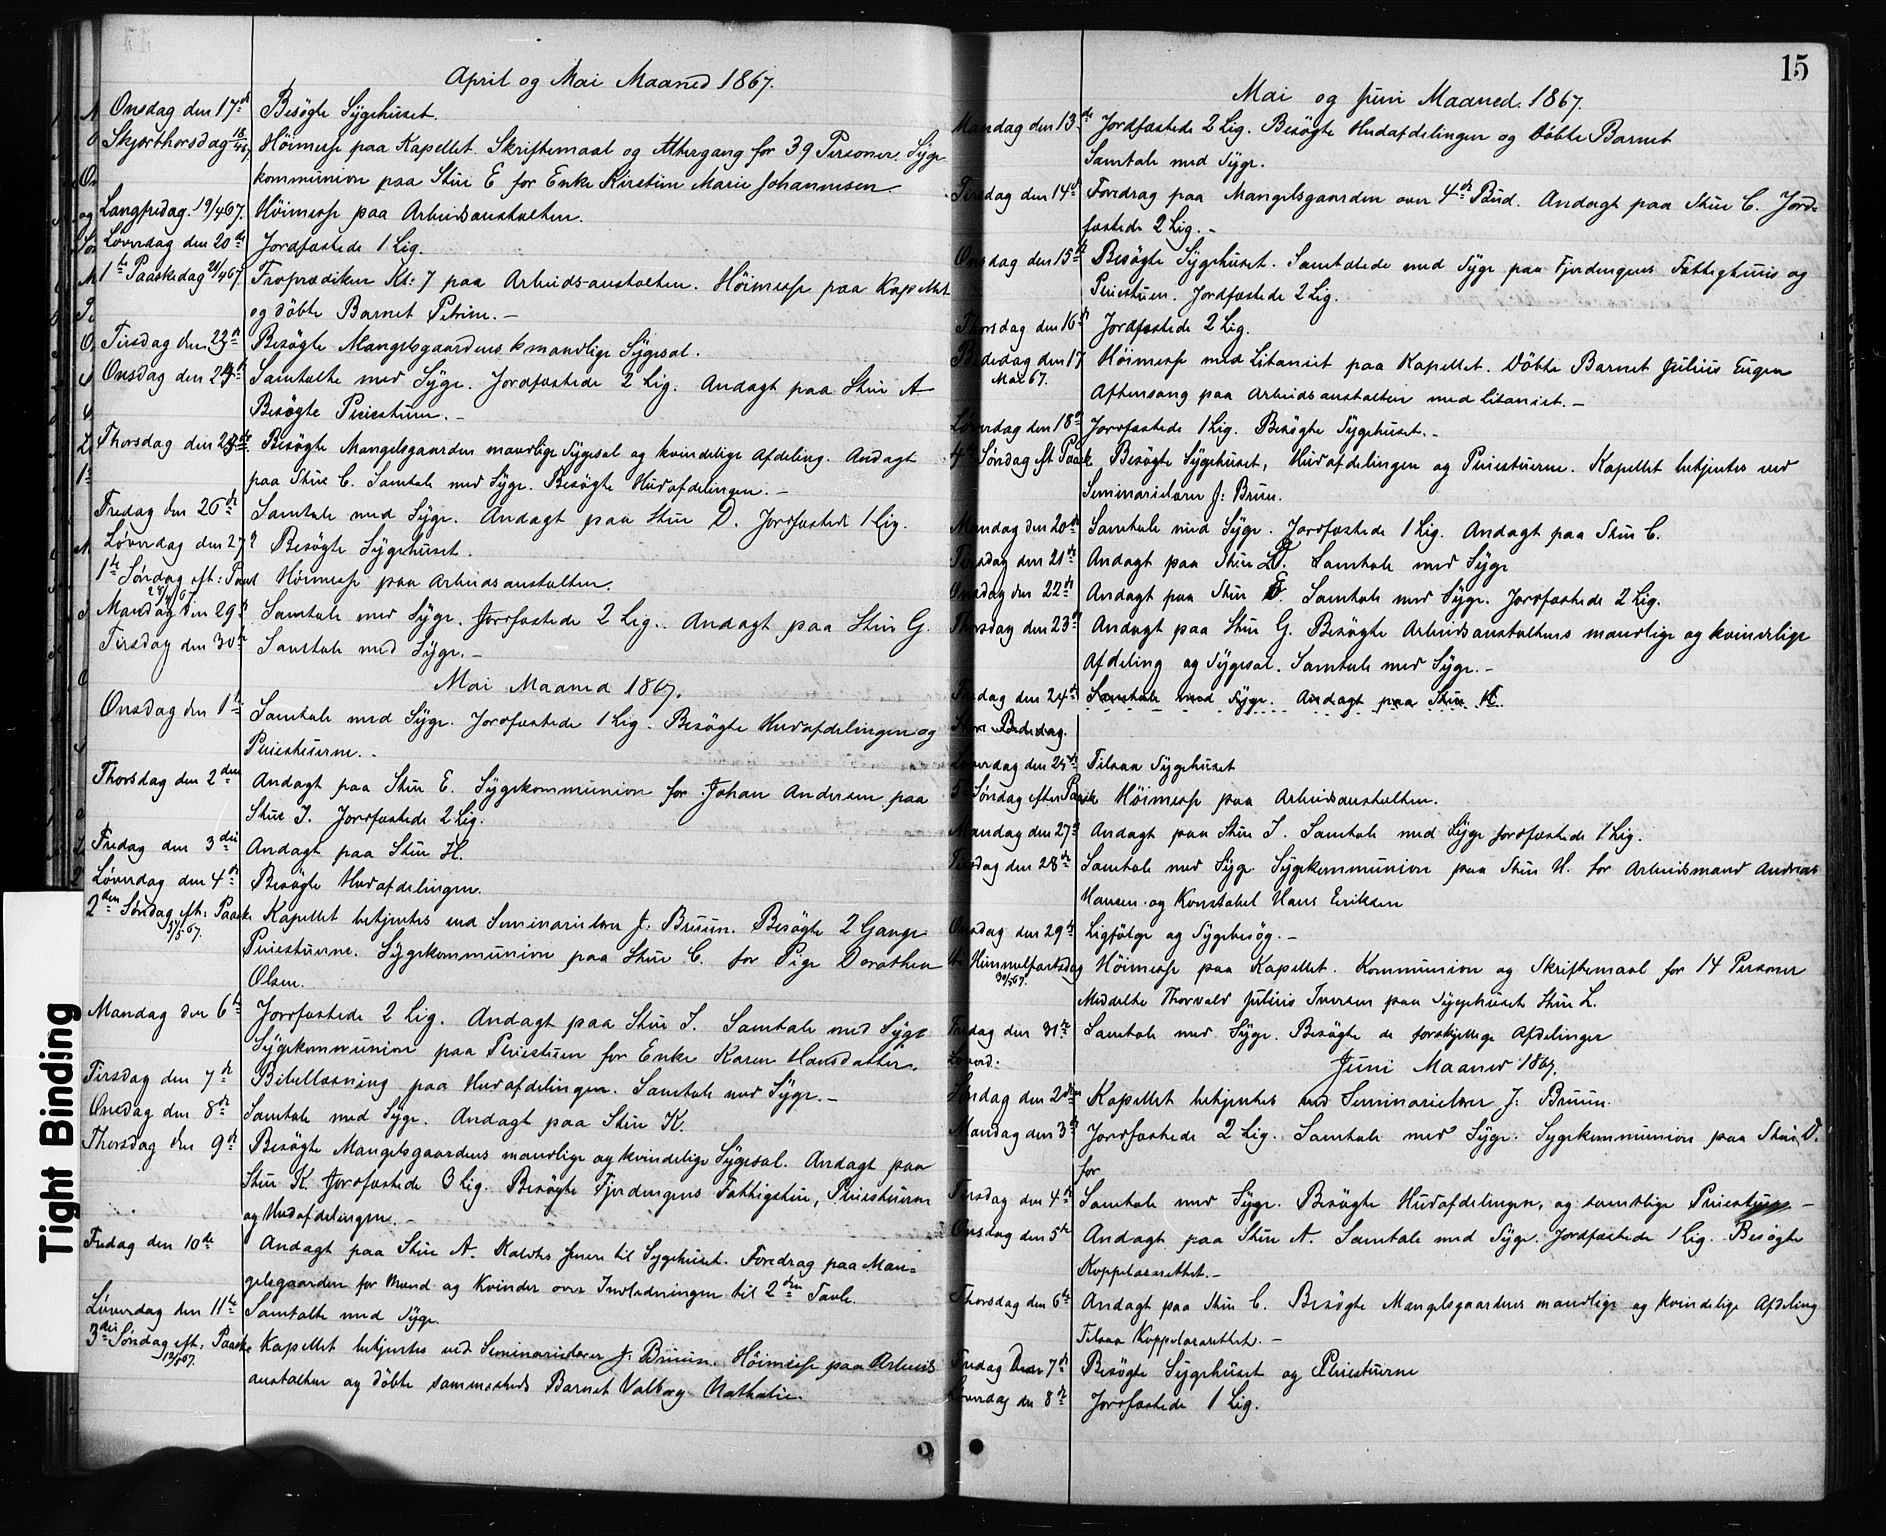 April og Mai Maaned 1867.
Onsdag den 17de Besögte Sygehuset.
Skjærthorsdag 18/4 67. Höimesse paa Kapellet. Skriftemaal og Altergang for 39 Personer. Syge
kommunion paa Stue E for Enke Kirstine Marie Johannesen
Langfredag. 19/4 67. Höimesse paa Arbeidsanstalten.
Løverdag den 20de Jordfæstede 1 Lig.
1ste Paaskedag 21/4 67. Froprædiken Kl: 7 paa Arbeids-anstalten. Höimesse paa Kapellet
og döbte Barnet Petrine. –
Tirsdag den 23de Besøgte Mangelsgaardens mandlige Sygesal.
Onsdag den 24de Samtalte med Syge. Jordfæstede 2 Lig. Andagt paa Stue A
Besøgte Pleiestuen. –
Thorsdag den 25de Besøgte Mangelsgaarden mandlige Sygesal og kvindelige Afdeling. Andagt
paa Stue C. Samtale med Syge. Besøgte Hudafdelingen. –
Fredag den 26de Samtale med Syge. Andagt paa Stue D. Jordfæstede 1 Lig.
Løverdag den 27de Besøgte Sygehuset.
1ste Søndag eft: Paask 28/4 67 Höimesse paa Arbeidsanstalten.
Mandag den 29de Samtale med Syge. Jordfæstede 2 Lig. Andagt paa Stue G.
Tirsdag den 30te Samtale med Syge. –
Mai Maaned 1867.
Onsdag den 1ste Samtale med Syge. Jordfæstede 1 Lig. Besøgte Hudafdelingen og
Pleiestuerne. –
Thorsdag den 2den Andagt paa Stue E. Sygekommunion for Johan Andersen paa
Stue I. Jordfæstede 2 Lig.
Fredag den 3die Andagt paa Stue H.
Løverdag den 4de Besøgte Hudafdelingen.
2den Søndag eft: Paaske 5/5 67. Kapellet betjentes ved Seminarielærer J: Bruun. Besøgte 2 Gange
Pleiestuerne. Sygekommunion paa Stue C. for Pige Dorothea
Olsen.
Mandag den 6te Jordfæstede 2 Lig. Andagt paa Stue I. Samtale med Syge
Sygekommunion paa Pleiestuen for Enke Karen Hansdatter.
Tirsdag den 7de Bibellæsning paa Hudafdelingen. Samtale med Syge. –
Onsdag den 8de Samtale med Syge. Andagt paa Stue K.
Thorsdag den 9de Besøgte Mangelsgaardens mandlige og kvindelige Sygesal. Andagt paa
Stue K. Jordfæstede 3 Lig. Besøgte Fjerdingens Fattigstue, Pleiestuerne
og Hudafdelingen. –
Fredag den 10de Andagt paa Stue A. Kaldtes senere til Sygehuset. Foredrag paa Man-
gelsgaarden for Mænd og Kvinder over Indledningen til 2den Tavle.
Løverdag den 11te Samtalte med Syge.
3die Søndag eft: Paaske 12/5 67. Kapellet betjentes ved Seminarielærer J: Bruun. Höimesse paa Arbeids
anstalten og döbte sammesteds Barnet Valborg Nathalie.
15
Mai og Juni Maaned. 1867.
Mandag den 13de Jordfæstede 2 Lig. Besøgte Hudafdelingen og döbte Barnet
Samtale med Syge.
Tirsdag den 14de Foredrag paa Mangelsgaarden over 4de Bud. Andagt paa Stue C. Jord-
fæstede 2 Lig. –
Onsdag den 15de Besøgte Sygehuset. Samtalede med Syge paa Fjerdingens Fattighuus og
Pleiestuen. Jordfæstede 2 Lig.
Thorsdag den 16de Jordfæstede 2 Lig.
Bededag den 17 Mai 67. Höimesse med Litaniet paa Kapellet. Döbte Barnet Julius Eugen
Aftensang paa Arbeidsanstalten med Litaniet. –
Løverdag den 18de Jordfæstede 1 Lig. Besøgte Sygehuset. –
4de Søndag eft Paask. Besøgte Sygehuset, Hudafdelingen og Pleiestuerne. Kapellet betjentes ved
Seminarielærer J: Bruun.
Mandag den 20de Samtale med Syge. Jordfæstede 1 Lig. Andagt paa Stue C.
Tirsdag den 21de Andagt paa Stue D. Samtale med Syge
Onsdag den 22de Andagt paa Stue E. Samtale med Syge. Jordfæstede 2 Lig.
Thorsdag den 23de Andagt paa Stue G. Besøgte Arbeidsanstaltens mandlige og kvindelige
Afdeling og Sygesal. Samtale med Syge. –
Fredag den 24de Samtale med Syge. Andagt paa Stue H.
Store Bededag.
Løverdag den 25de Tilsaa Sygehuset
5te Søndag efter Paask Höimesse paa Arbeidsanstalten.
Mandag den 27de Andagt paa Stue I. Samtale med Syge Jordfæstede 1 Lig.
Tirsdag den 28de Samtale med Syge. Sygekommunion paa Stue H. for Arbeidsmand Andreas
Hansen og Konstabel Hans Eriksen
Onsdag den 29de Ligfölge og Sygebesög. –
Himmelfartsdag 30/5 67. Höimesse paa Kapellet. Kommunion og Skriftemaal for 14 Personer
Meddelte Thorvald Julius Iversen paa Sygehusets Stue L.
Fredag den 31te Samtale med Syge. Besøgte de forskjellige Afdelinger
Løverd:
Juni Maaned 1867.
Søndag den 2den Kapellet betjentes ved Seminarielærer J: Bruun.
Mandag den 3die Jordfæstede 2 Lig. Samtale med Syge. Sygekommunion paa Stue D.
for
Tirsdag den 4de Samtale med Syge. Besøgte Hudafdelingen, og samtlige Pleiestuer –
Onsdag den 5te Andagt paa Stue A. Samtale med Syge. Jordfæstede 1 Lig. Besøgte
Koppelazarettet. –
Thorsdag den 6te Andagt paa Stue C. Besøgte Mangelsgaardens mandlige og kvindelige Afdeling
Tilsaa Koppelazarettet. –
Fredag den 7de Besøgte Sygehuset og Pleiestuerne
Løverdag den 8de Jordfæstede 1 Lig.
Tight Binding